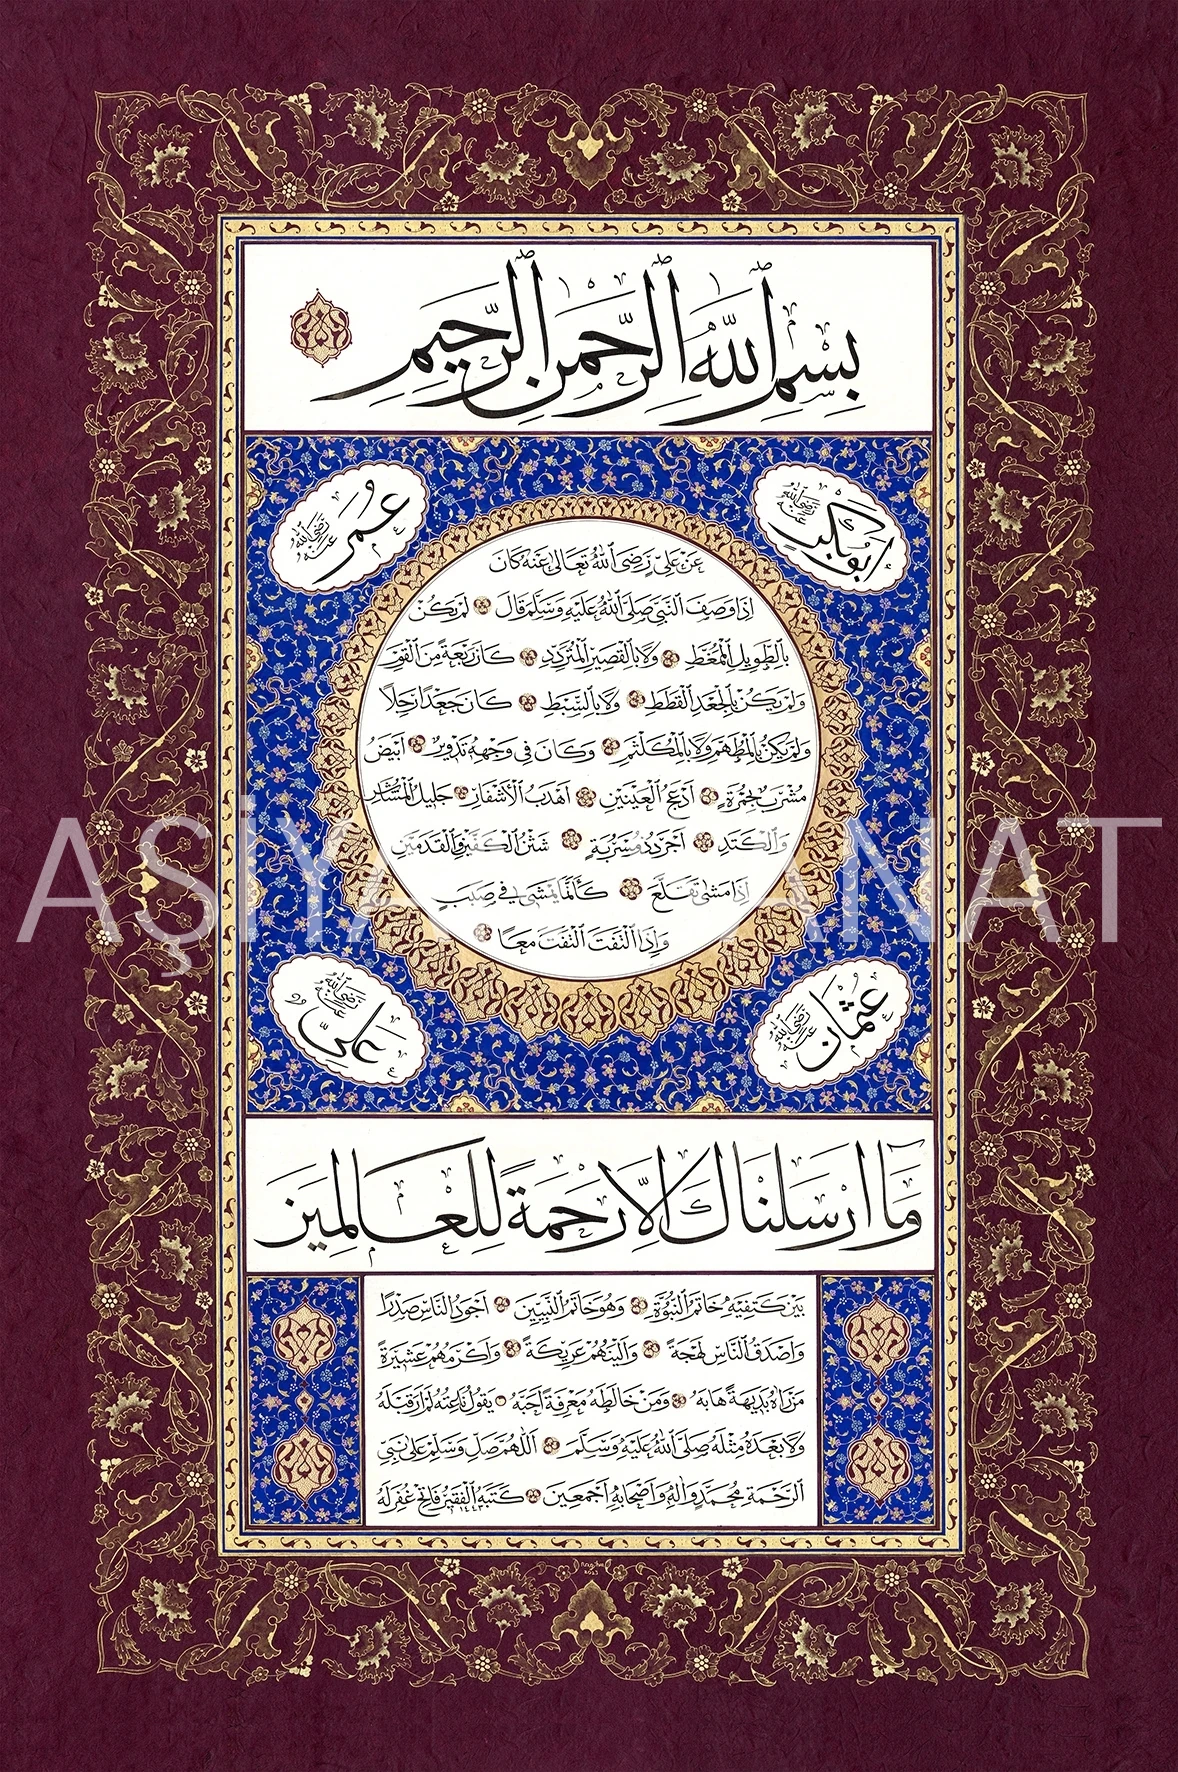 بِسْمِ اللَّهِ الرَّحْمَنِ الرَّحِيمِ
ابوبكر رضي الله عنه
عمر رضي الله عنه
عن علي رضي الله تعالى عنه كان
اذا وصف النبي صلى الله عليه وسلم قال لم يكن
بالطويل الممغط ولا بالقصير المتردد كان ربعة من القوم
ولم يكن بالجعد القطط ولا بالسبط كان جعدا رجلا
ولم يكن بالمطهم ولا بالمكلثم وكان في وجهه تدوير ابيض
مشرب بحمرة ادعج العينين اهدب الاشفار جليل المشاش
والكتد اجرد ذو مسربة شثن الكفين والقدمين
اذا مشى تقلع كأنما يمشي في صبب
واذا التفت التفت معا
عثمان رضي الله عنه
علي رضي الله عنه
ما ارسلناك الا رحمة للعالمين
بين كتفيه خاتم النبوة وهو خاتم النبيين اجود الناس صدرا
واصدق الناس لهجة والينهم عريكة واكرمهم عشيرة
من رآه بديهة هابه ومن خالطه معرفة احبه يقول ناعته لم ار قبله
ولا بعده مثله صلى الله عليه وسلم اللهم صل وسلم على نبي
الرحمة محمد وآله واصحابه اجمعين كتبه الفقير فاتح غفر له
AŞİYAN SANAT